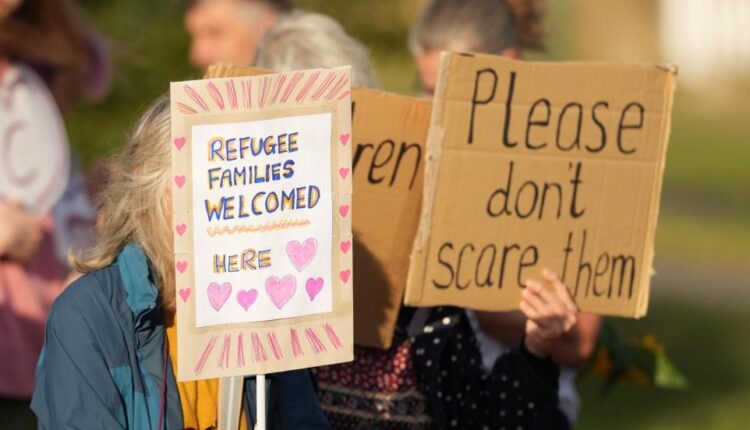 REFUGEE
FAMILIES
WELCOMED
HERE
Please
don't
scare them